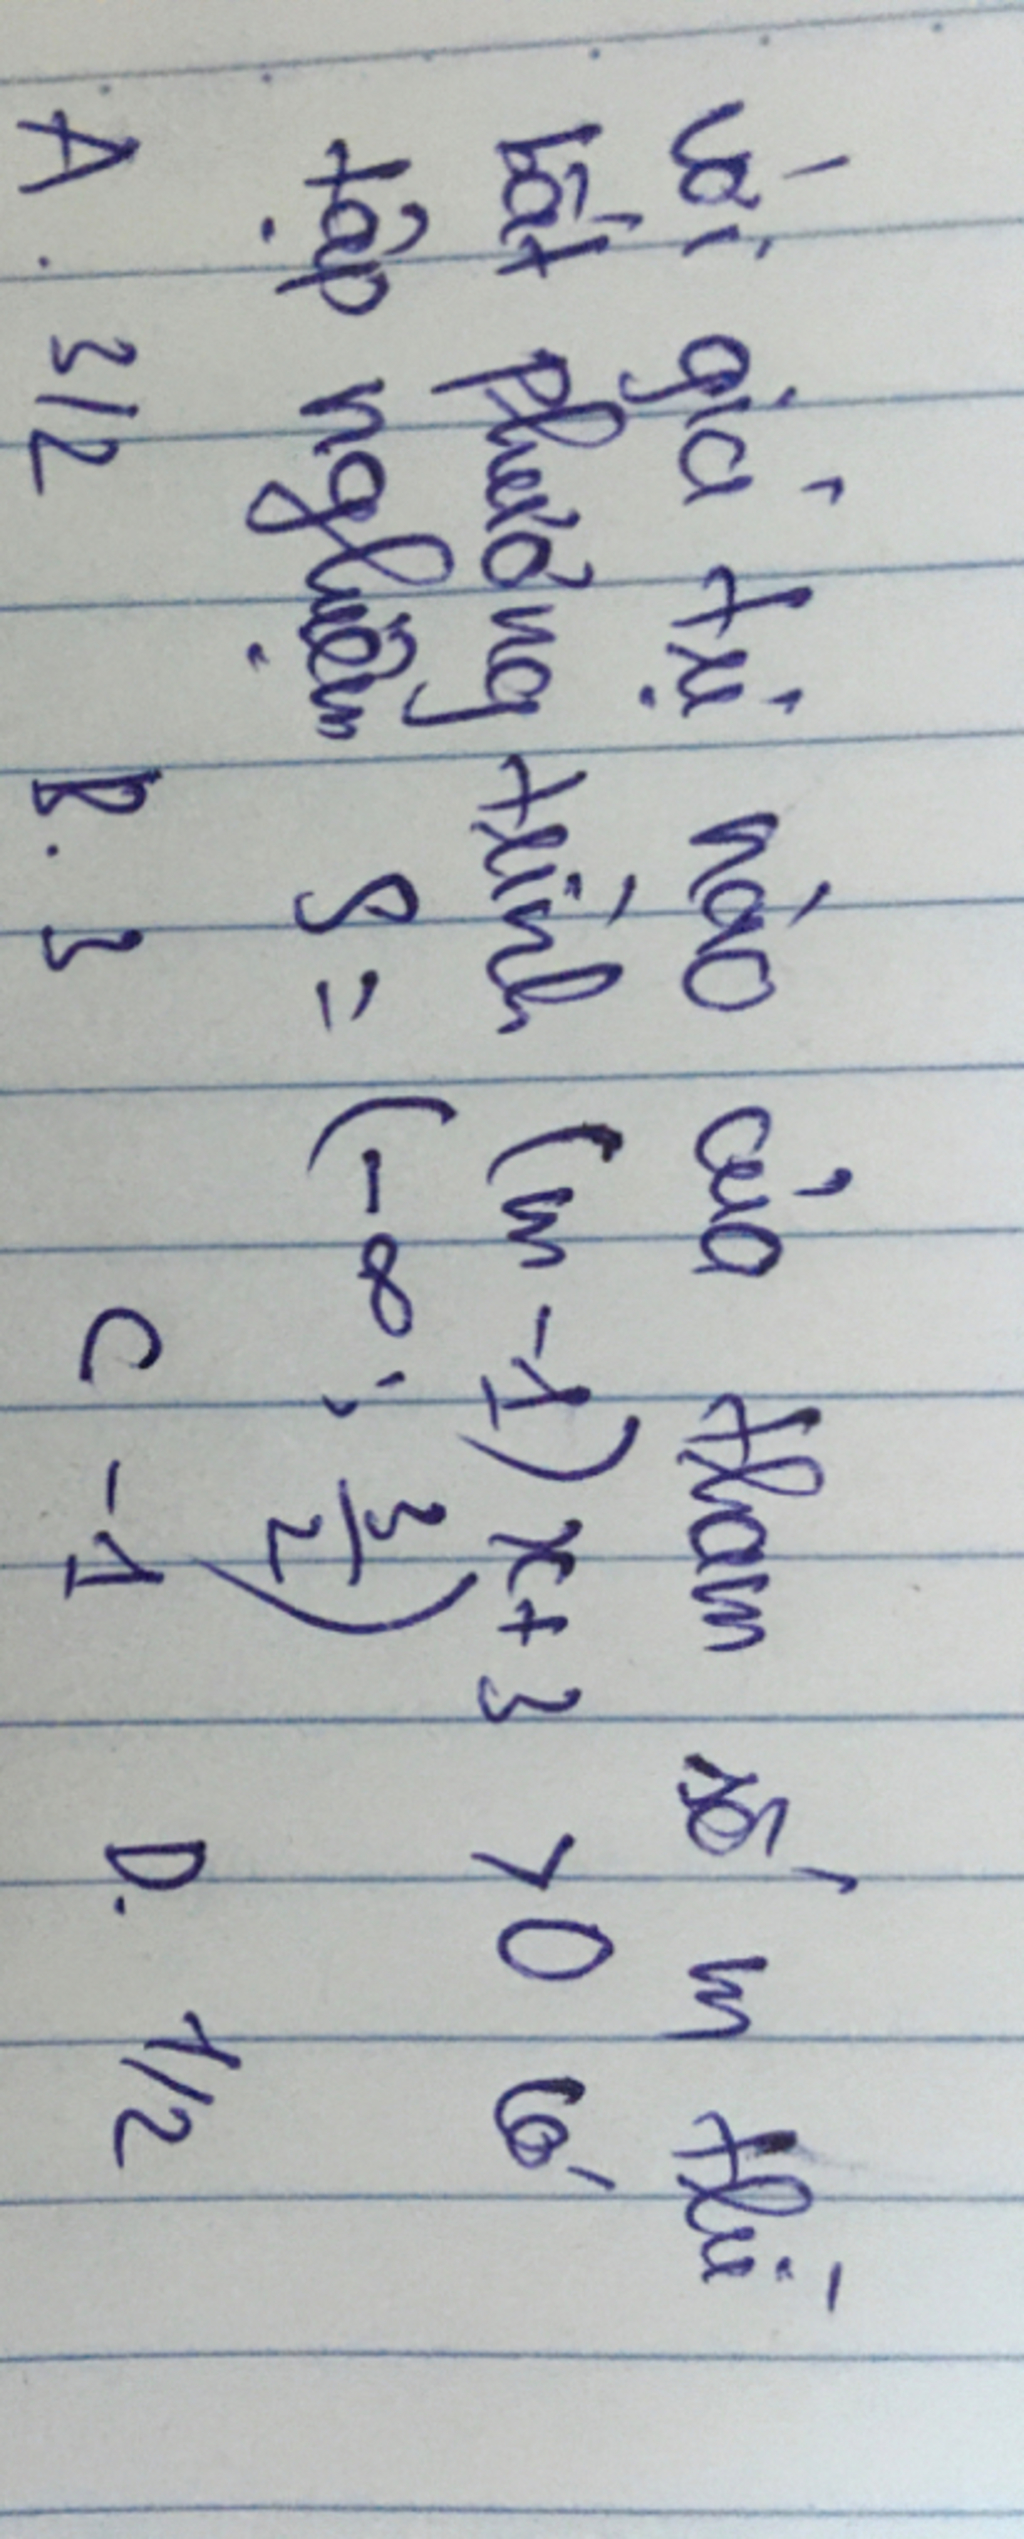 Với giá trị nào của tham số m thì
bất phương trình (m-1)x+3 > 0 có
tập nghiệm S = (-∞; 3/2)
A. 3/2 B. 3 C -1 D. 1/2